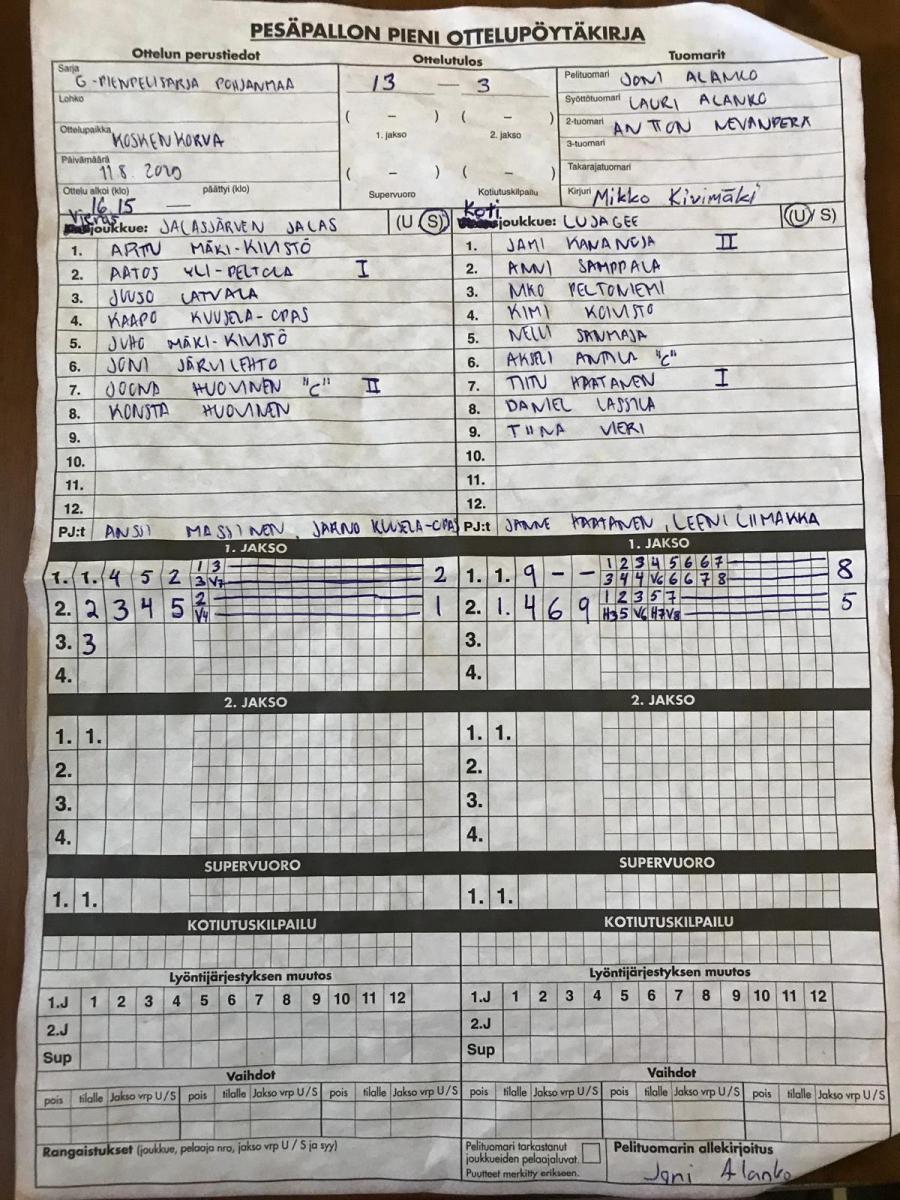 PESÄPALLON PIENI OTTELUPÖYTÄKIRJA
Ottelun perustiedot
Ottelutulos
Tuomarit
Sarja G-PIENPELISARJA POHJANMAA
Lohko
Ottelupaikka KOSKENKORVA
Päivämäärä 11.8.2020
Ottelu alkoi (klo) 16.15 päättyi (klo) —
13 — 3
( – ) ( – )
1. jakso 2. jakso
( – ) ( – )
Supervuoro Kotiutuskilpailu
Pelituomari JONI ALANKO
Syöttötuomari LAURI ALANKO
2-tuomari ANTTON NEVANPERÄ
3-tuomari
Takarajatuomari
Kirjuri Mikko Kivimäki
Vieras joukkue: JALASJÄRVEN JALAS (U S)
1. ARTTU MÄKI-KIVISTÖ
2. AATOS YLI-PELTOLA I
3. JUUSO LATVALA
4. KAAPO KUUSELA-OPAS
5. JUHO MÄKI-KIVISTÖ
6. JONI JÄRVILEHTO
7. JOONA HUOVINEN "C" II
8. KONSTA HUOVINEN
9.
10.
11.
12.
PJ:t ANSSI MASSINEN, JARNO KUUSELA-OPAS
Koti joukkue: LUJAGEE (U/S)
1. JAMI KANANOJA II
2. ANNI SAMPPALA
3. NIKO PELTONIEMI
4. KIMI KOIVISTO
5. NELLI SANMAJA
6. AKSELI ANTILA "C"
7. TIITU HAATANEN I
8. DANIEL LASSILA
9. TIINA VIERI
10.
11.
12.
PJ:t JANNE HAATANEN, LEENI LIIMAKKA
1. JAKSO
1. 1. 4 5 2 1 3 2
3 V7
2. 2 3 4 5 2 1
V4
3. 3
4.
1. JAKSO
1. 1. 9 – – 1 2 3 4 5 6 6 7 8
3 4 4 V6 6 6 7 8
2. 1. 4 6 9 1 2 3 5 7 5
H3 5 V6 H7 V8
3.
4.
2. JAKSO
1. 1.
2.
3.
4.
2. JAKSO
1. 1.
2.
3.
4.
SUPERVUORO
1. 1.
SUPERVUORO
1. 1.
KOTIUTUSKILPAILU
KOTIUTUSKILPAILU
Lyöntijärjestyksen muutos
1.J 1 2 3 4 5 6 7 8 9 10 11 12
2.J
Sup
Lyöntijärjestyksen muutos
1.J 1 2 3 4 5 6 7 8 9 10 11 12
2.J
Sup
Vaihdot
pois tilalle Jakso vrp U / S pois tilalle Jakso vrp U / S pois tilalle Jakso vrp U / S
Vaihdot
pois tilalle Jakso vrp U / S pois tilalle Jakso vrp U / S pois tilalle Jakso vrp U / S
Rangaistukset (joukkue, pelaaja nro, jakso vrp U / S ja syy)
Pelituomari tarkastanut
joukkueiden pelaajaluvat.
Puutteet merkitty erikseen.
Pelituomarin allekirjoitus
Joni Alanko